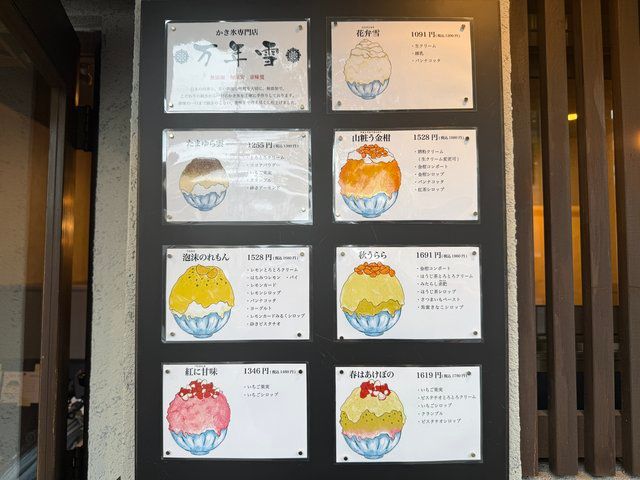 かき氷専門店
万年雪
花弁雪 1091円(税込1200円)
・生クリーム
・練乳
・パンナコッタ
たまゆら雲 1255円
山粧う金柑 1528円
(生クリーム変更可)
・金柑コンポート
・金柑シロップ
・パンナコッタ
・紅茶シロップ
泡沫のれもん 1528円
・レモンとろとろクリーム
・はちみつレモン ・パイ
・レモンカード
・レモンシロップ
・パンナコッタ
・ヨーグルト
・レモンカードみるくシロップ
・砕きピスタチオ
秋うらら 1691円
・金柑コンポート
・ほうじ茶とろとろクリーム
・ほうじ茶シロップ
・さつまいもペースト
・黒蜜きなこシロップ
紅に甘味 1346円(税込1480円)
・いちご果実
・いちごシロップ
春はあけぼの 1619円(税込1780円)
・いちご果実
・ピスタチオとろとろクリーム
・いちごシロップ
・クランブル
・ピスタチオシロップ